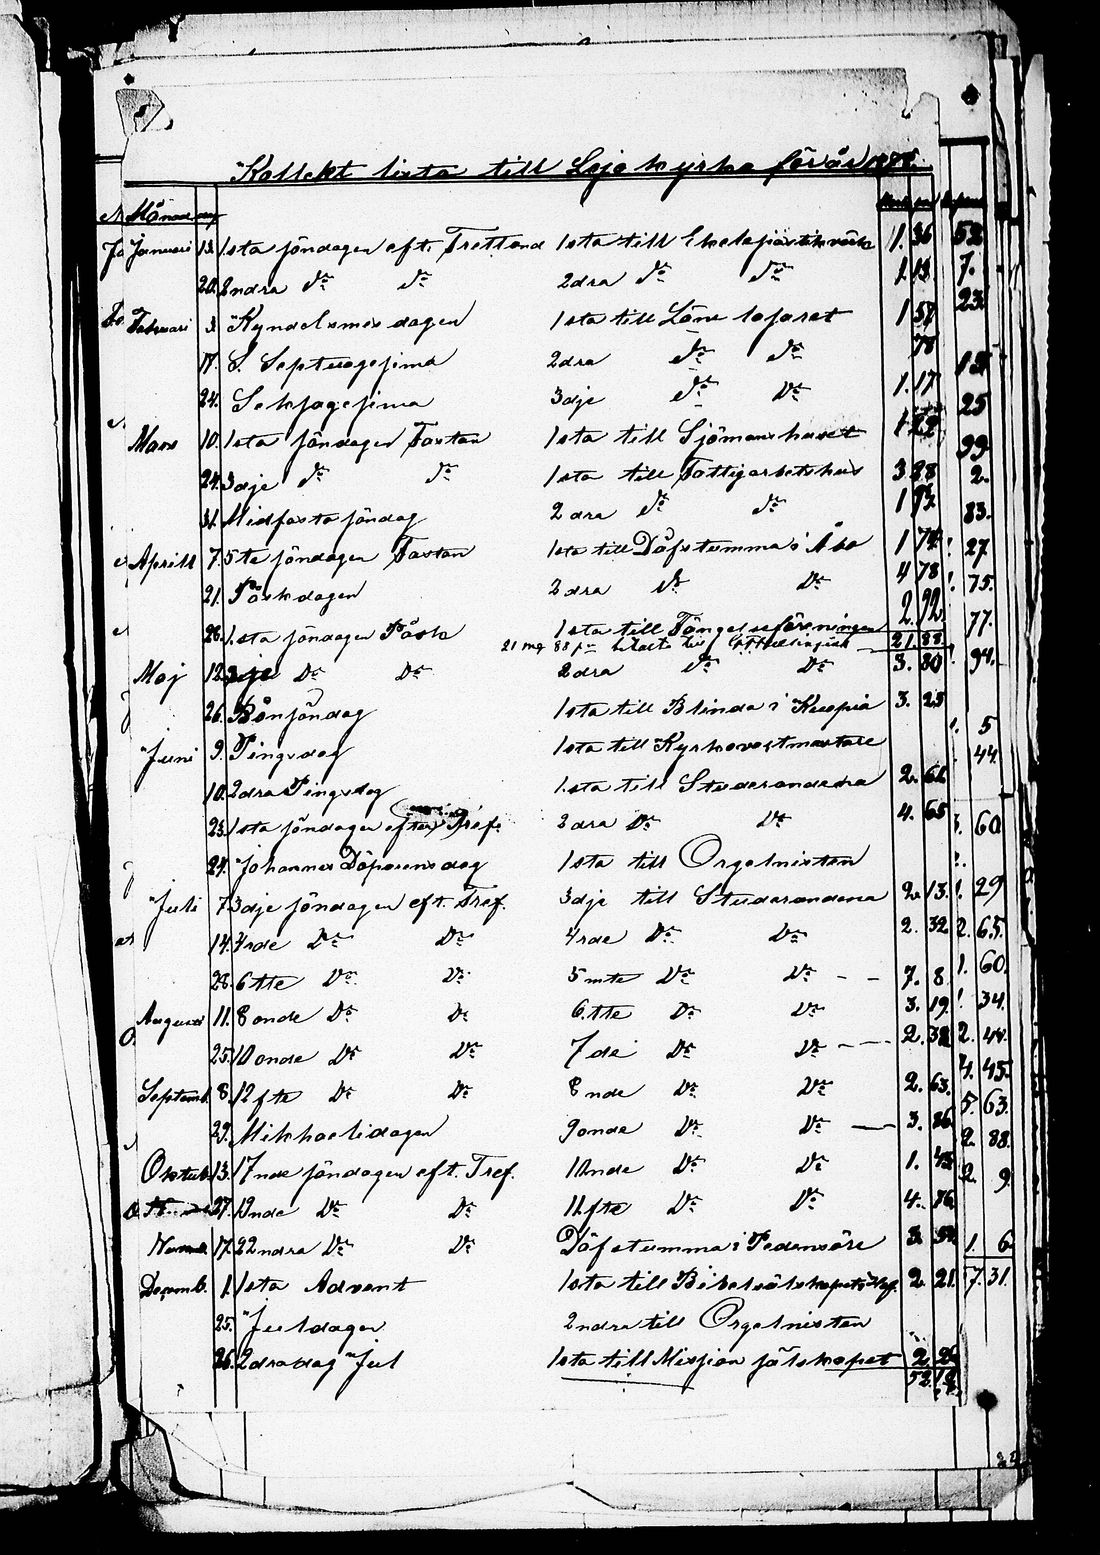 Kollekt lista till Lojo kyrka för år
Månad dag
Januari 13. 1sta söndagen eft. Trettond 1sta till 1. 36
20. 2ndra Do Do 2dra Do Do 1. 13.
Februari 3. Kyndelsmes dagen 1sta till Läns lasaret 1 57
17. S. Septuagesima 2dra Do Do 78
24. Seksagesima 3dje Do Do 1. 17
Mars 10. 1sta söndagen Fastan 1sta till Sjömanshuset
24. 3dje Do Do 1sta till Fattigarbetshus 3 88
31. Midfasto söndag 2dra Do Do 1
Aprill 7. 5te söndagen Fastan 1sta till Döfstumma i Åbo 1 74
21. Påskdagen 2dra Do Do 4 78
28. 1.sta söndagen Påsk 1sta till Fängelseföreningen 2. 92
21 mg 88 pn till 21. 88
Maj 12. 3dje Do Do 2dra Do Do 3. 80
26. Bönsöndag 1sta till Blinda i Kuopio 3. 25
Juni 9. Pingsdag 1sta till Kyrkovaktmästare
10. 2dra Pingsdag 1.sta till Studerandena 2. 66
23. 1sta söndagen efter Tref. 2dra Do Do 4. 65
24. Johannes Döparens dag 1sta till Orgelnisten
Juli 7. 3dje söndagen eft. Tref. 3dje till Studerandena 2. 13.
14. 4rde Do Do 4rde Do Do 2. 32
28. 6tte Do Do 5mte Do Do 7. 8.
Augusti 11. 8onde Do Do 6.tte Do Do 3. 19.
25. 10onde Do Do 7de Do Do 2. 38
Septemb. 8. 12fte Do Do 8nde Do Do 2. 63.
29. Mikhaelidagen 9onde Do Do 3. 86
Oktub. 13. 17nde söndagen eft. Tref. 10nde Do Do 1. 45
27. 19nde Do Do 11fte Do Do 4. 86
Novemb. 17. 22ndra Do Do Döfstumma i Pedersöre
Decemb. 1. 1sta Advent 1sta till Bibelsälskapets 2. 21.
25. Juldagen 2ndra till Orgelnisten
26. 2dra dag Jul 1sta till Missjon sälskapet 2. 26
52. 12
52
7.
23
25
99.
2.
83.
27
75.
77.
94.
5
44
60
29
2. 65.
1. 60.
34.
2. 44.
4. 45.
5. 63.
2. 88.
2. 9.
1. 6.
7. 31.